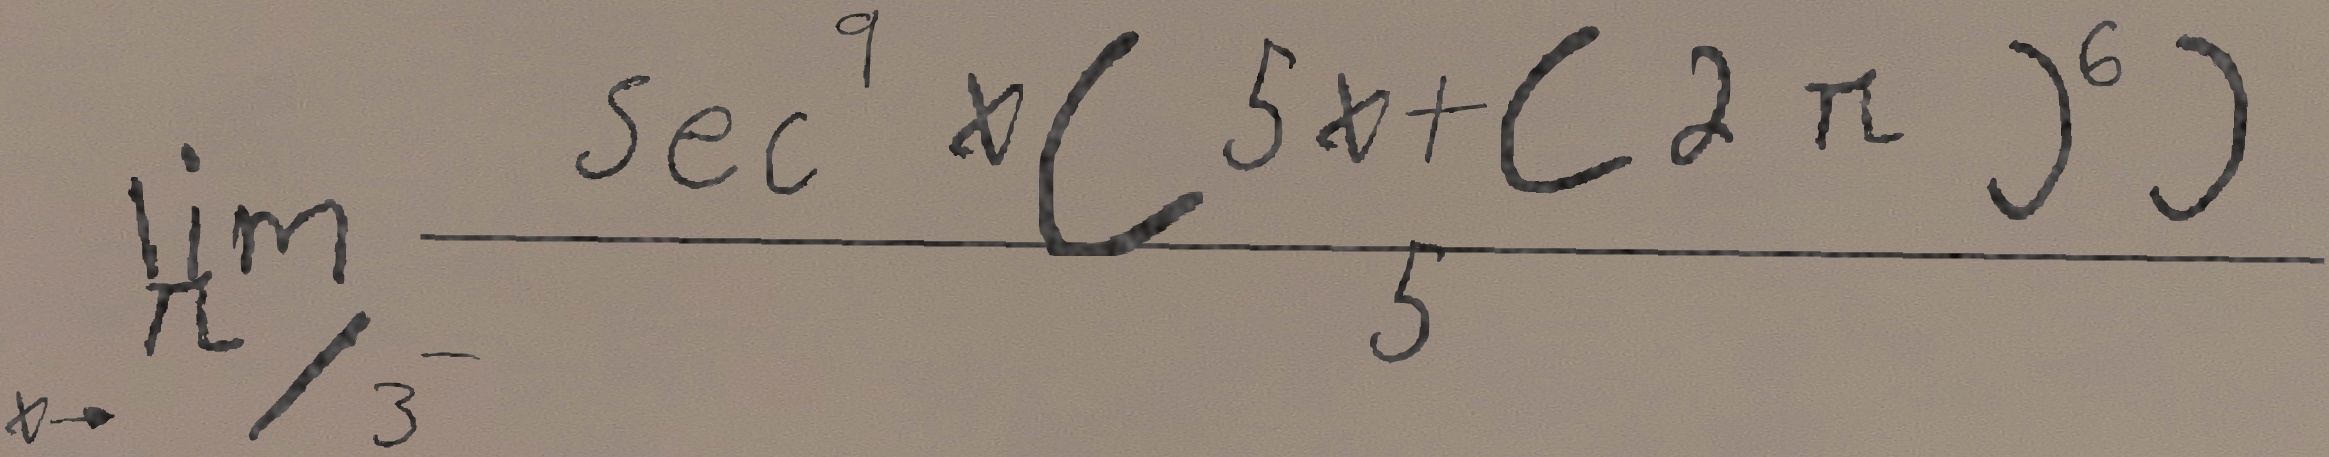 \lim_{x \to \pi/3^-} \frac{\sec^9 x (5x + (2\pi)^6)}{5}